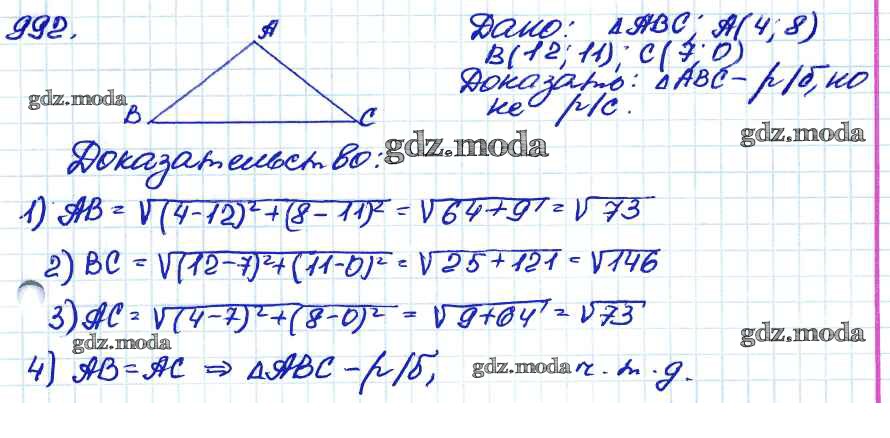 992.
A
B
C
Дано: △ABC; A(4; 8)
B(12; 11); C(7; 0)
Доказать: △ABC – р/б, но
не р/с.
Доказательство:
1) AB = √(4-12)²+(8-11)² = √64+9 = √73
2) BC = √(12-7)²+(11-0)² = √25+121 = √146
3) AC = √(4-7)²+(8-0)² = √9+64 = √73
4) AB = AC ⇒ △ABC – р/б, ч.т.д.
gdz.moda
gdz.moda
gdz.moda
gdz.moda
gdz.moda
gdz.moda